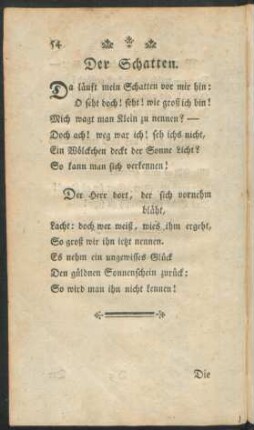 54
Der Schatten.
Da läuft mein Schatten vor mir hin:
O seht doch! seht! wie groß ich bin!
Mich wagt man Klein zu nennen? —
Doch ach! weg war ich! seh ichs nicht,
Ein Wölkchen deckt der Sonne Licht?
So kann man sich verkennen!
Der Herr dort, der sich vornehm
bläht,
Lacht: doch wer weiß, wies ihm ergeht,
So groß wir ihn itzt nennen.
Es nehm ein ungewisses Glück
Den güldnen Sonnenschein zurück:
So wird man ihn nicht kennen!
Die